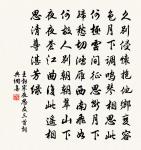 久別侵懷抱他鄉變容
色月下調鳴琴相思此
何極雲間征思斷月下
歸愁切鴻雁西南飛如
何故人別朝朝翠山下
夜夜蒼江曲復此遙相
思清尊湛芳綠
王勃寒夜思友三首